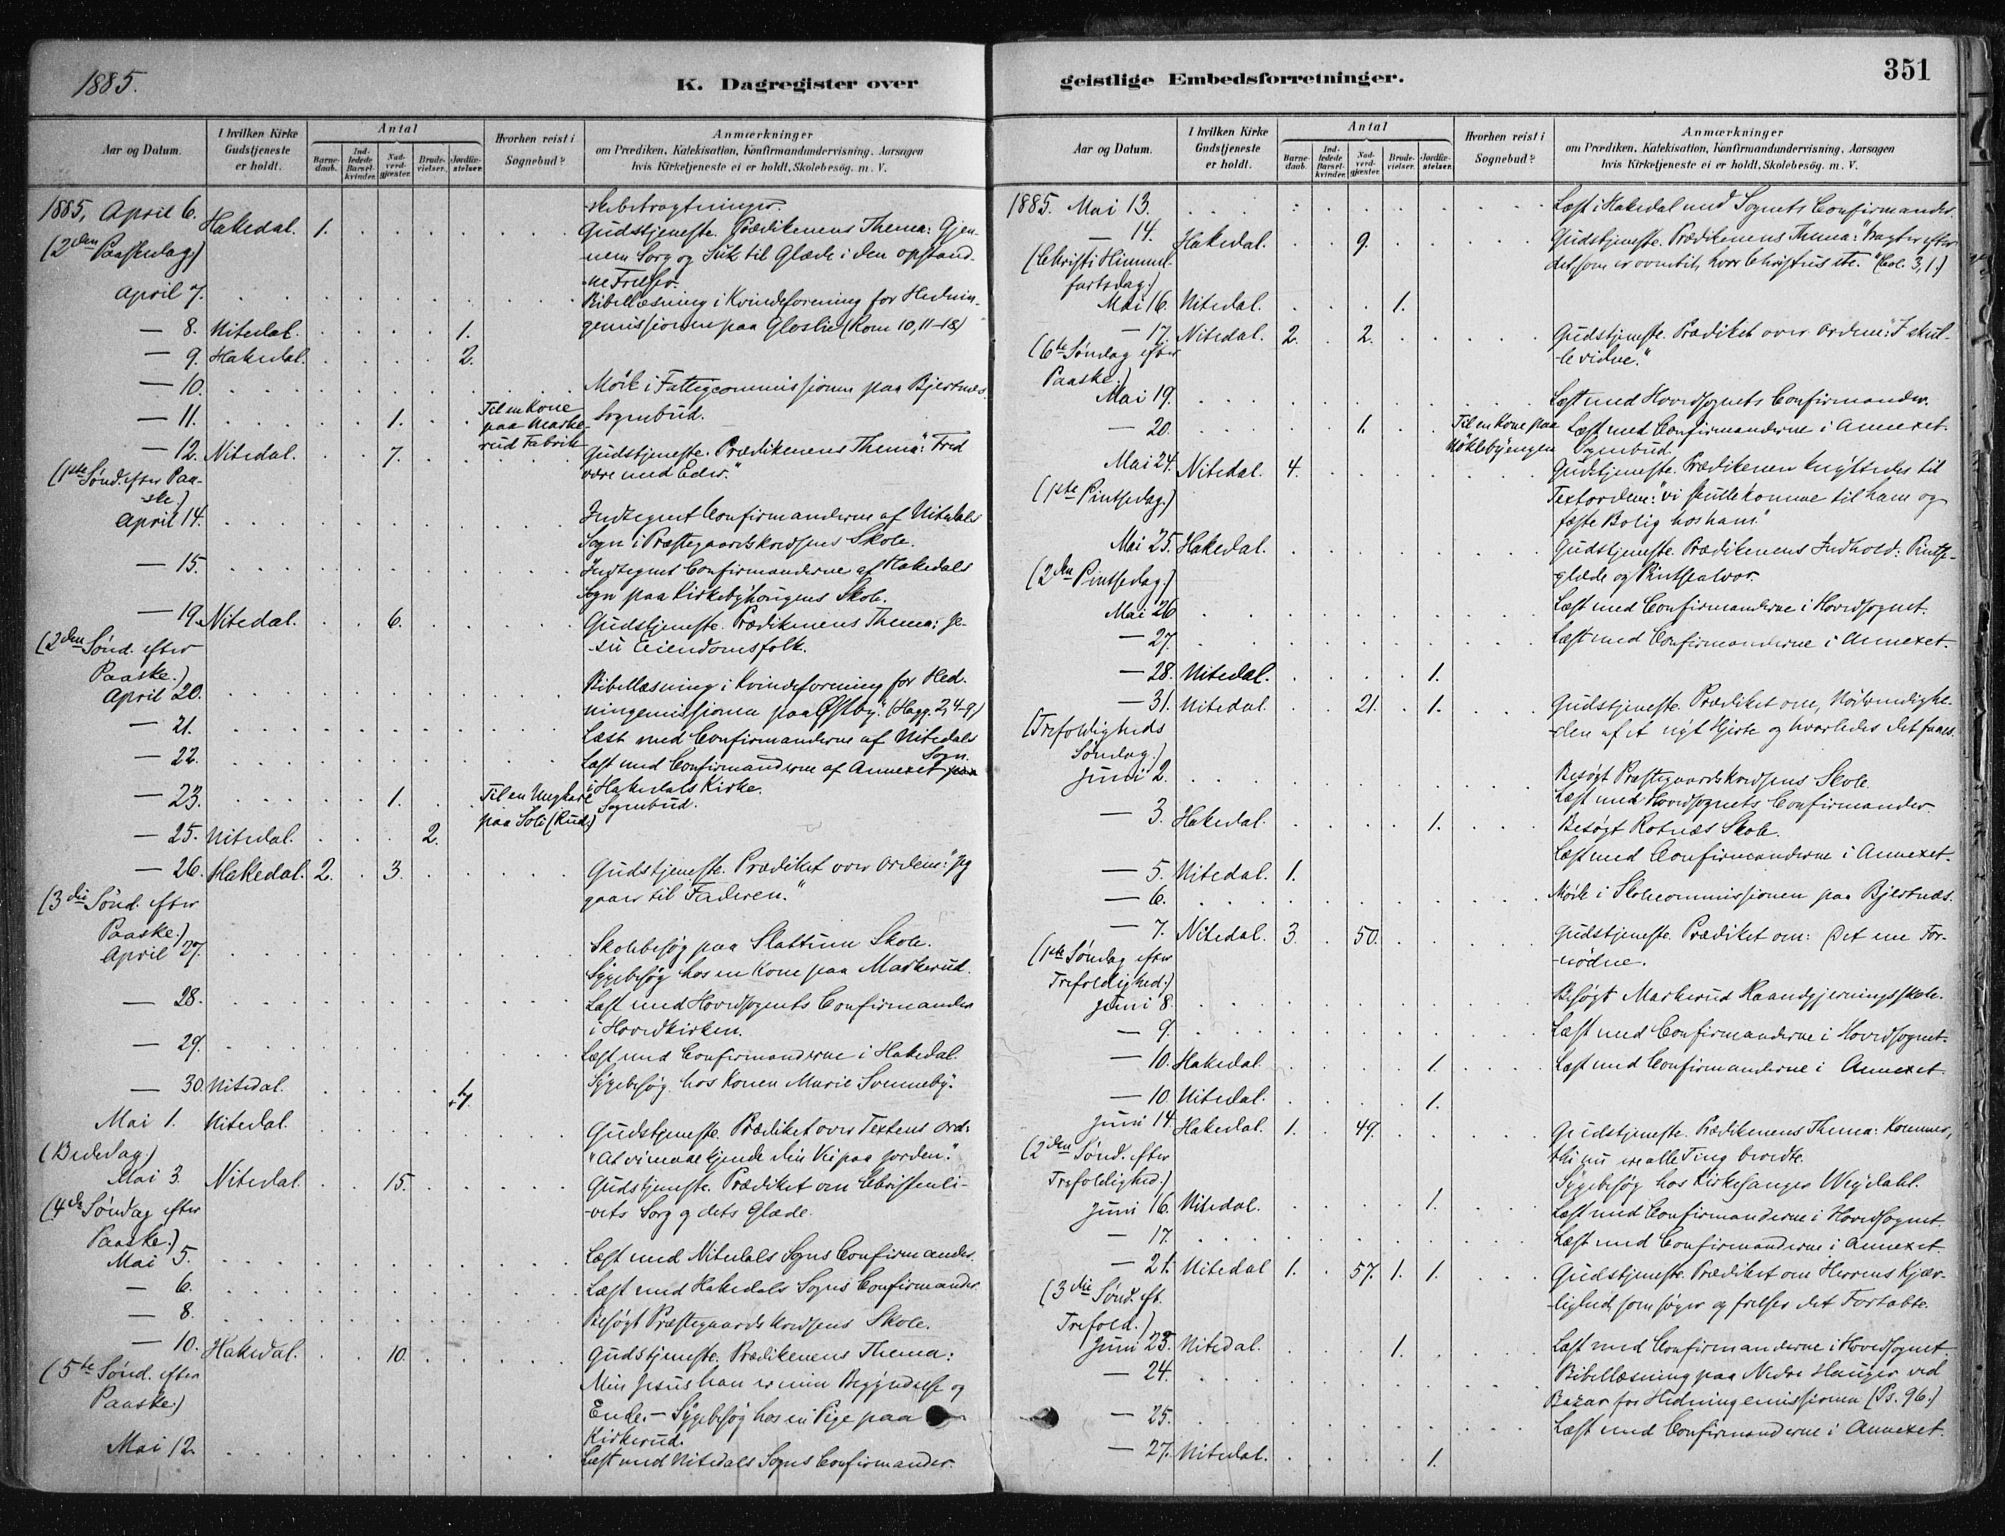 1885.
K. Dagregister over
Aar og Datum.
I hvilken Kirke
Gudstjeneste
er holdt.
Antal
Barne-
daab.
Ind-
ledede
Barsel-
kvinder.
Nad-
verd-
gjæster.
Brude-
vielser.
Jordfæ-
stelser.
Hvorhen reist i
Sognebud?
Anmærkninger
om Prædiken, Katekisation, Konfirmandundervisning, Aarsagen
hvis Kirketjeneste ei er holdt, Skolebesøg. m. V.
skebetragtninger.
1885, April 6. Hakedal. 1. Gudstjeneste. Prædikenens Thema: Gjen-
(2den Paaskedag) nem Sorg og Suk til Glæde i den opstand-
ne Frelser.
April 7. Bibellæsning i Kvindeforening for Hednin-
— 8. Nitedal. 1. gemissionen paa Gloslie (Rom 10, 11-18)
— 9. Hakedal. 2.
— 10. Møde i Fattigcommissionen paa Bjertnæs.
— 11. 1. Til en Kone Sognebud.
paa Marke-
rud Fabrik
— 12. Nitedal. 7. Gudstjeneste. Prædikenens Thema: "Fred
(1ste Sønd. efter Paa- være med Eder."
ske)
April 14. Indtegnet Confirmanderne af Nitedals
Sogn i Præstegaardskredsens Skole.
— 15. Indtegnet Confirmanderne af Hakedals
Sogn paa Kirkebyhaugens Skole.
— 19. Nitedal. 6. Gudstjeneste. Prædikenens Thema: Je-
(2den Sønd. efter su Eiendomsfolk.
Paaske.)
April 20. Bibellæsning i Kvindeforening for Hed-
ningemissionen paa Østby. (Hagg. 2, 4-9)
— 21. Læst med Confirmanderne af Nitedals
Sogn.
— 22. Læst med Confirmanderne af Annexet
i Hakedals Kirke.
— 23. 1. Til en Ungkarl Sognebud.
paa Soli (Rud.)
— 25. Nitedal. 2.
— 26. Hakedal. 2. 3. Gudstjeneste. Prædiket over Ordene: "Jeg
(3die Sønd. efter gaaer til Faderen."
Paaske.)
April 27. Skolebesøg paa Slattum Skole.
Sygebesøg hos en Kone paa Markerud.
— 28. Læst med Hovedsognets Confirmander
i Hovedkirken.
— 29. Læst med Confirmanderne i Hakedal.
— 30. Nitedal. 4. Sygebesøg hos Konen Marie Sønneby.
Mai 1. Nitedal. Gudstjeneste. Prædiket over Textens Ord:
(Bededag.) "At vi maae kjende din Vei paa Jorden."
Mai 3. Nitedal. 15. Gudstjeneste. Prædiket om Christenli-
(4de Søndag efter vets Sorg og dets Glæde.
Paaske.)
Mai 5. Læst med Nitedals Sogns Confirmander.
— 6. Læst med Hakedals Sogns Confirmander
— 8. Besøgt Præstegaardskredsens Skole.
— 10. Hakedal. 10. Gudstjeneste. Prædikenens Thema:
(5te Sønd. efter Min Jesus han er min Begyndelse og
Paaske.) Ende. — Sygebesøg hos en Pige paa
Kirkerud.
Mai 12. Læst med Nitedals Sogns Confirmander.
geistlige Embedsforretninger.
351
Aar og Datum.
I hvilken Kirke
Gudstjeneste
er holdt.
Antal
Barne-
daab.
Ind-
ledede
Barsel-
kvinder.
Nad-
verd-
gjæster.
Brude-
vielser.
Jordfæ-
stelser.
Hvorhen reist i
Sognebud?
Anmærkninger
om Prædiken, Katekisation, Konfirmandundervisning, Aarsagen
hvis Kirketjeneste ei er holdt, Skolebesøg. m. V.
1885. Mai 13. Læst i Hakedal med Sognets Confirmander.
— 14. Hakedal. 9. Gudstjeneste. Prædikenens Thema: "Tragter efter
(Christi Himmel- det, som er oventil, hvor Christus er." (Col. 3, 1.)
fartsdag.)
Mai 16. Nitedal. 1.
— 17. Nitedal. 2. 2. Gudstjeneste. Prædiket over Ordene: "I skul-
(6te Søndag efter le vidne."
Paaske.)
Mai 19. Læst med Hovedsognets Confirmander.
— 20. 1. Til en Kone paa Læst med Confirmanderne i Annexet.
Møklebyengen Sognebud.
Mai 24. Nitedal. 4. Gudstjeneste. Prædikenen knyttedes til
(1ste Pintsedag.) Textordene: "vi skulle komme til ham og
fæste Bolig hos ham."
Mai 25. Hakedal. Gudstjeneste. Prædikenens Indhold: Pintse-
(2den Pintsedag.) glæde og Pintsealvor.
Mai 26. Læst med Confirmanderne i Hovedsognet.
— 27. Læst med Confirmanderne i Annexet.
— 28. Nitedal. 1.
— 31. Nitedal. 21. 1. Gudstjeneste. Prædiket om, Nødvendighe-
(Trefoldigheds den af et nyt Hjerte og hvorledes det faaes.
Søndag.)
Juni 2. Besøgt Præstegaardskredsens Skole.
Læst med Hovedsognets Confirmander.
— 3. Hakedal. 1. Besøgt Rotnæs Skole.
Læst med Confirmanderne i Annexet.
— 5. Nitedal. 1.
— 6. Møde i Skolecommissionen paa Bjertnæs.
— 7. Nitedal. 3. 50. Gudstjeneste. Prædiket om: Det ene For-
(1ste Søndag efter nødne.
Trefoldighed.)
Juni 8. Besøgt Markerud Haandgjerningsskole.
— 9. Læst med Confirmanderne i Hovedsognet.
— 10. Hakedal. 1. Læst med Confirmanderne i Annexet.
— 10. Nitedal. 1.
Juni 14. Hakedal. 1. 49. Gudstjeneste. Prædikenens Thema: Kommer,
(2den Sønd. efter thi nu ere alle Ting beredte.
Trefoldighed.) Sygebesøg hos Kirkesanger Weydahl.
Juni 16. Nitedal. 1. Læst med Confirmanderne i Hovedsognet.
— 17. Læst med Confirmanderne i Annexet.
— 21. Nitedal 1. 57. 1. 1. Gudstjeneste. Prædiket om Herrens Kjær-
(3die Sønd. eft. lighed, som søger og frelser det Fortabte.
Trefold.)
Juni 23. Nitedal. 1. Læst med Confirmanderne i Hovedsognet.
— 24. Bibellæsning paa Nedre Hauger ved
Bazar for Hedningemissionen (Ps. 96.)
— 25. Læst med Confirmanderne i Annexet.
— 27. Nitedal. 1.